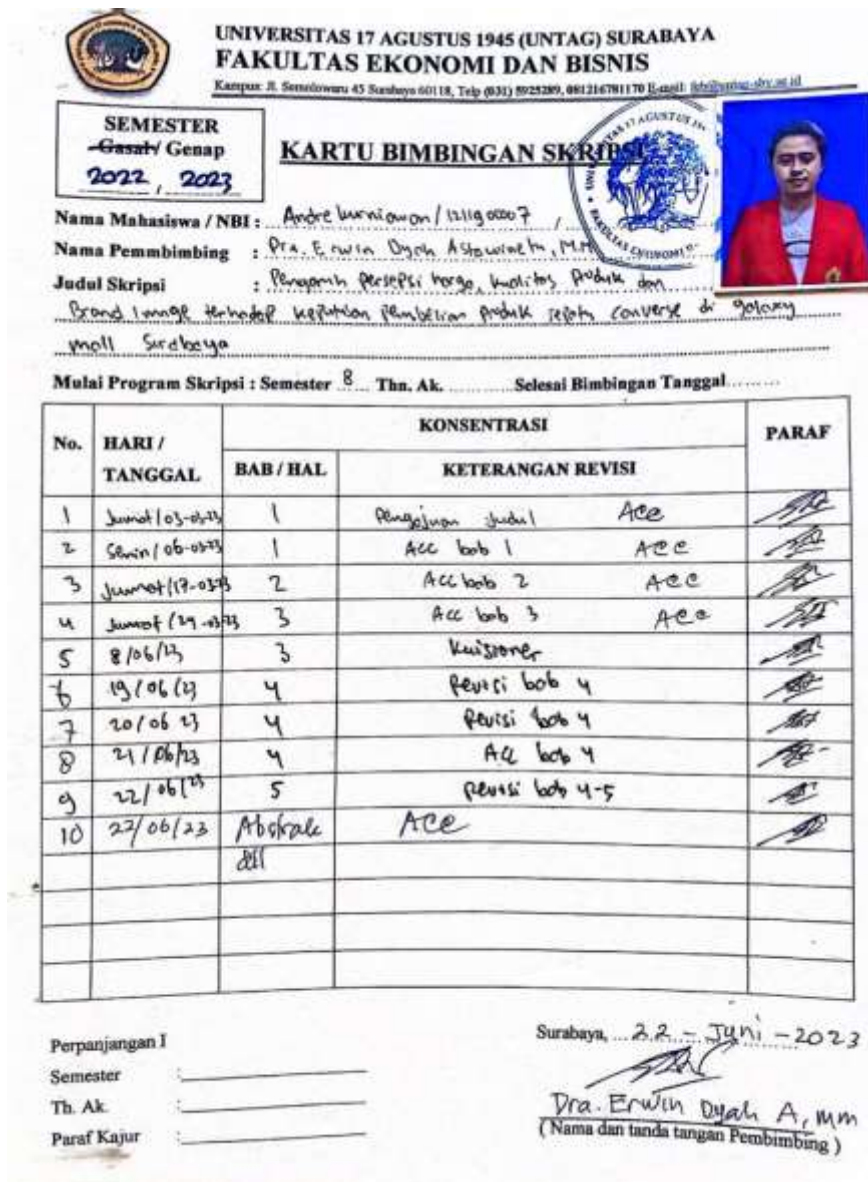 UNIVERSITAS 17 AGUSTUS 1945 (UNTAG) SURABAYA
FAKULTAS EKONOMI DAN BISNIS
Kampus: Jl. Semolowaru 45 Surabaya 60118, Telp (031) 5925289, 081216781170 E-mail: feb@untag-sby.ac.id
SEMESTER
Gasal/ Genap
2022 , 2023
KARTU BIMBINGAN SKRIPSI
Nama Mahasiswa / NBI : Andre kurniawan / 1211900007
Nama Pemmbimbing : Dra. Erwin Dyah Astawinetu, MM
Judul Skripsi : Pengaruh persepsi harga, kualitas Produk dan
Brand Image terhadap keputusan pembelian produk sepatu converse di galaxy
mall Surabaya
Mulai Program Skripsi : Semester 8 Thn. Ak. Selesai Bimbingan Tanggal
No. HARI / TANGGAL KONSENTRASI PARAF
BAB / HAL KETERANGAN REVISI
1 Jumat / 03-03-23 1 Pengajuan Judul Acc
2 Senin / 06-03-23 1 Acc bab 1 Acc
3 Jumat / 17-03-23 2 Acc bab 2 Acc
4 Jumat / -03-23 3 Acc bab 3 Acc
5 8/06/23 3 kuisioner
6 19/06/23 4 Revisi bab 4
7 20/06 23 4 Revisi bab 4
8 21/06/23 4 Acc bab 4
9 22/06/23 5 Revisi bab 4-5
10 22/06/23 Abstrak Acc
dll
Perpanjangan I
Semester :
Th. Ak. :
Paraf Kajur :
Surabaya, 22 - Juni - 2023
Dra. Erwin Dyah A, MM
( Nama dan tanda tangan Pembimbing )